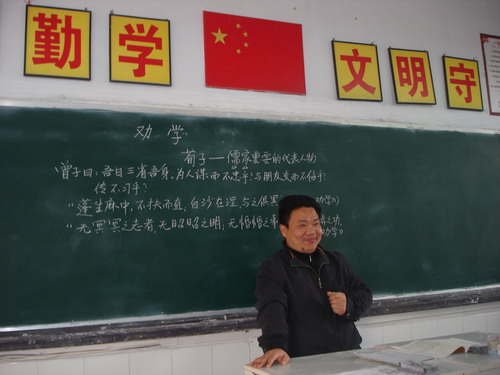 勤 学 文 明 守
劝 学
荀子——儒家重要的代表人物
曾子曰:吾日三省吾身,为人谋而不忠乎?与朋友交而不信乎?
传不习乎?
“蓬生麻中,不扶而直,白沙在涅,与之俱黑
学》
“无冥冥之志者,无昭昭之明,无惛惛之事
之功
劝学》